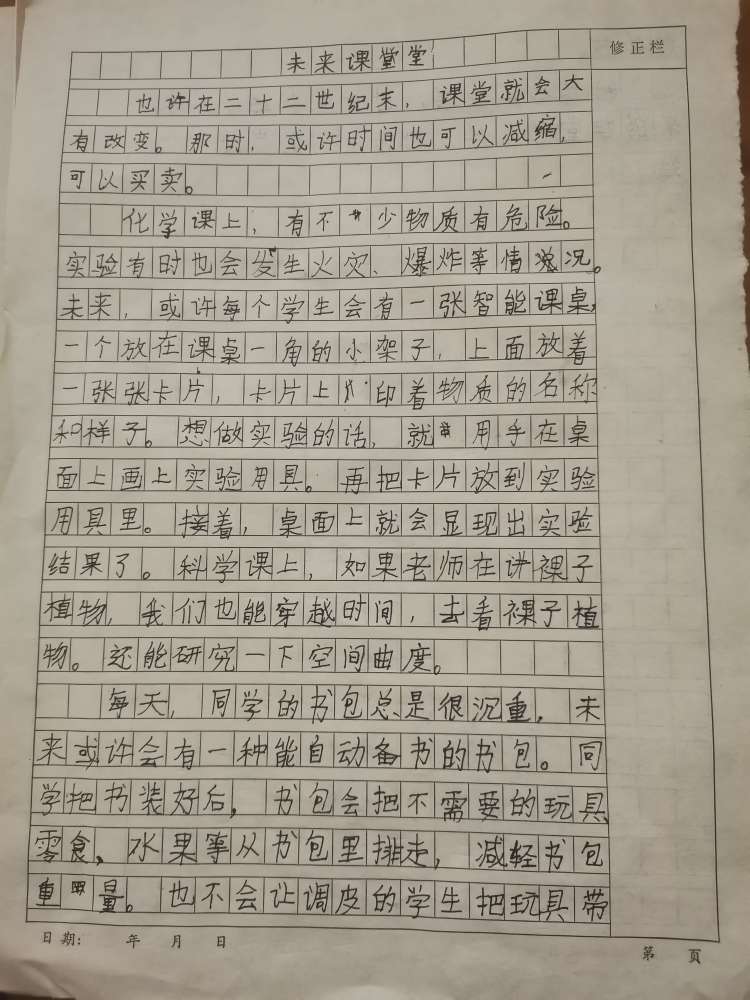 修正栏
未来课堂堂
也许在二十二世纪末，课堂就会大
有改变。那时，或许时间也可以减缩，
可以买卖。
化学课上，有不少物质有危险。
实验有时也会发生火灾、爆炸等情况。
未来，或许每个学生会有一张智能课桌，
一个放在课桌一角的小架子，上面放着
一张张卡片，卡片上印着物质的名称
和样子。想做实验的话，就用手在桌
面上画上实验用具。再把卡片放到实验
用具里。接着，桌面上就会显现出实验
结果了。科学课上，如果老师在讲裸子
植物，我们也能穿越时间，去看裸子植
物。还能研究一下空间曲度。
每天，同学的书包总是很沉重，未
来或许会有一种能自动备书的书包。同
学把书装好后，书包会把不需要的玩具、
零食、水果等从书包里排走，减轻书包
重量。也不会让调皮的学生把玩具带
日期： 年 月 日
第 页